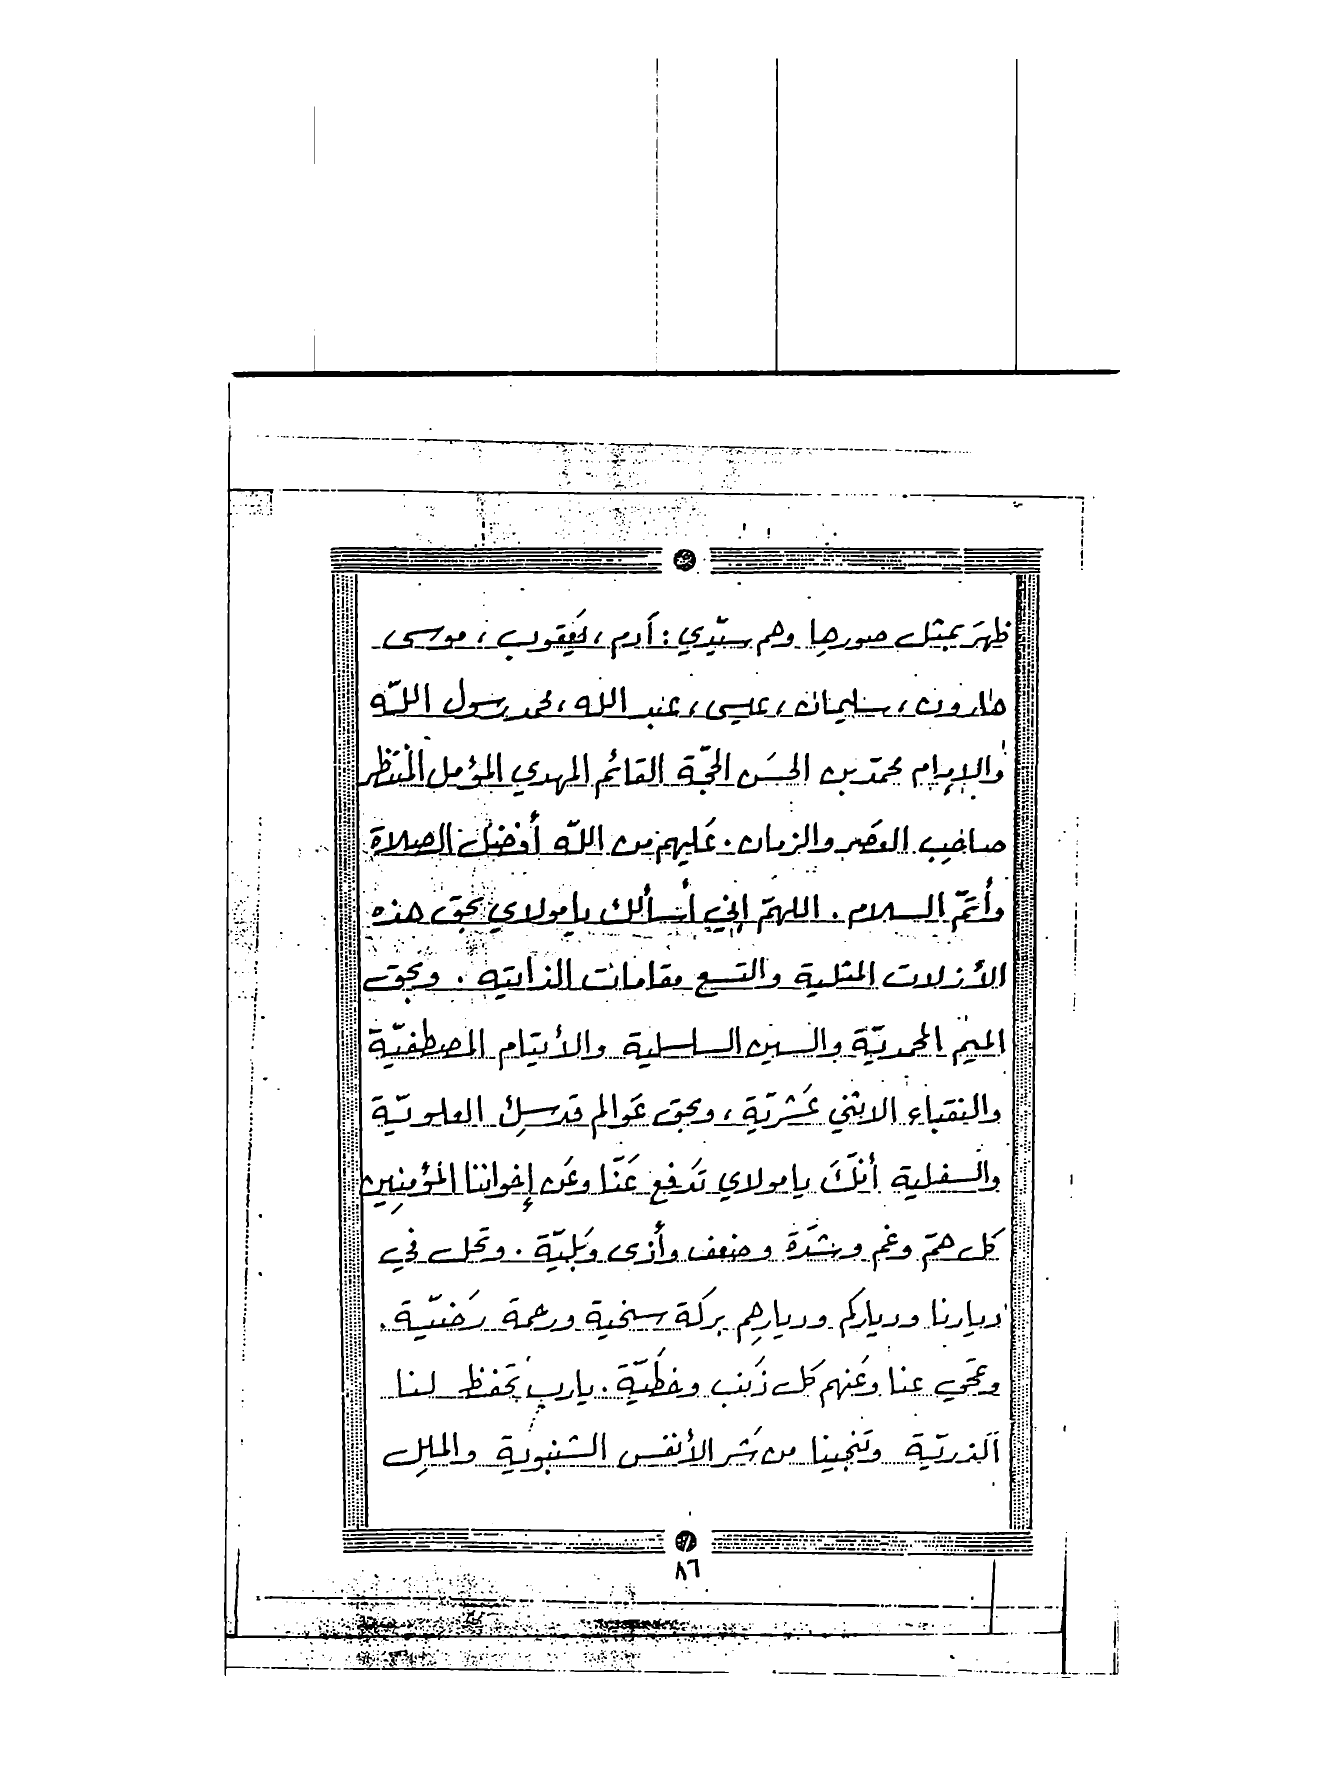 ظهرَ بمثل صورها وهم سيّدي: آدم، يَعقوب، موسى
هارون، سليمان، عيسى، عبد الله، محمد رسول اللّه
والإمام محمدّ بن الحسَن الحجّة القائم المهدي المؤمل المنتَظر
صاحِب العصَر والزمان. عَليهم من اللّه أفضل الصلاة
وأتمّ السلام. اللهمّ إني أسألك يا مولاي بحق هذه
الأزلات المثلية والتسع مقامات الذاتيه. وبحق
الميم المحمديّة والسين السلسلية والأيتام المصطفيّة
والنقباء الاثني عَشريّة، وبحق عَوالم قدسِك العلويّة
والسفلية أنّكَ يا مولاي تدَفع عَنّا وعَن إخواننا المؤمنِين
كل همّ وغم وشدّة وضعف وأذى وبَليّة. وتحل في
ديارنا ودياركم وديارهِم بركة سخية ورحمة رَضيّة.
وتمحَي عنا وعَنهم كل ذَنب وخطَيّة. يارب تحَفظ لنا
الَذريّة وتنجينا من شَر الأنفس الشنبوية والملِل
٨٦